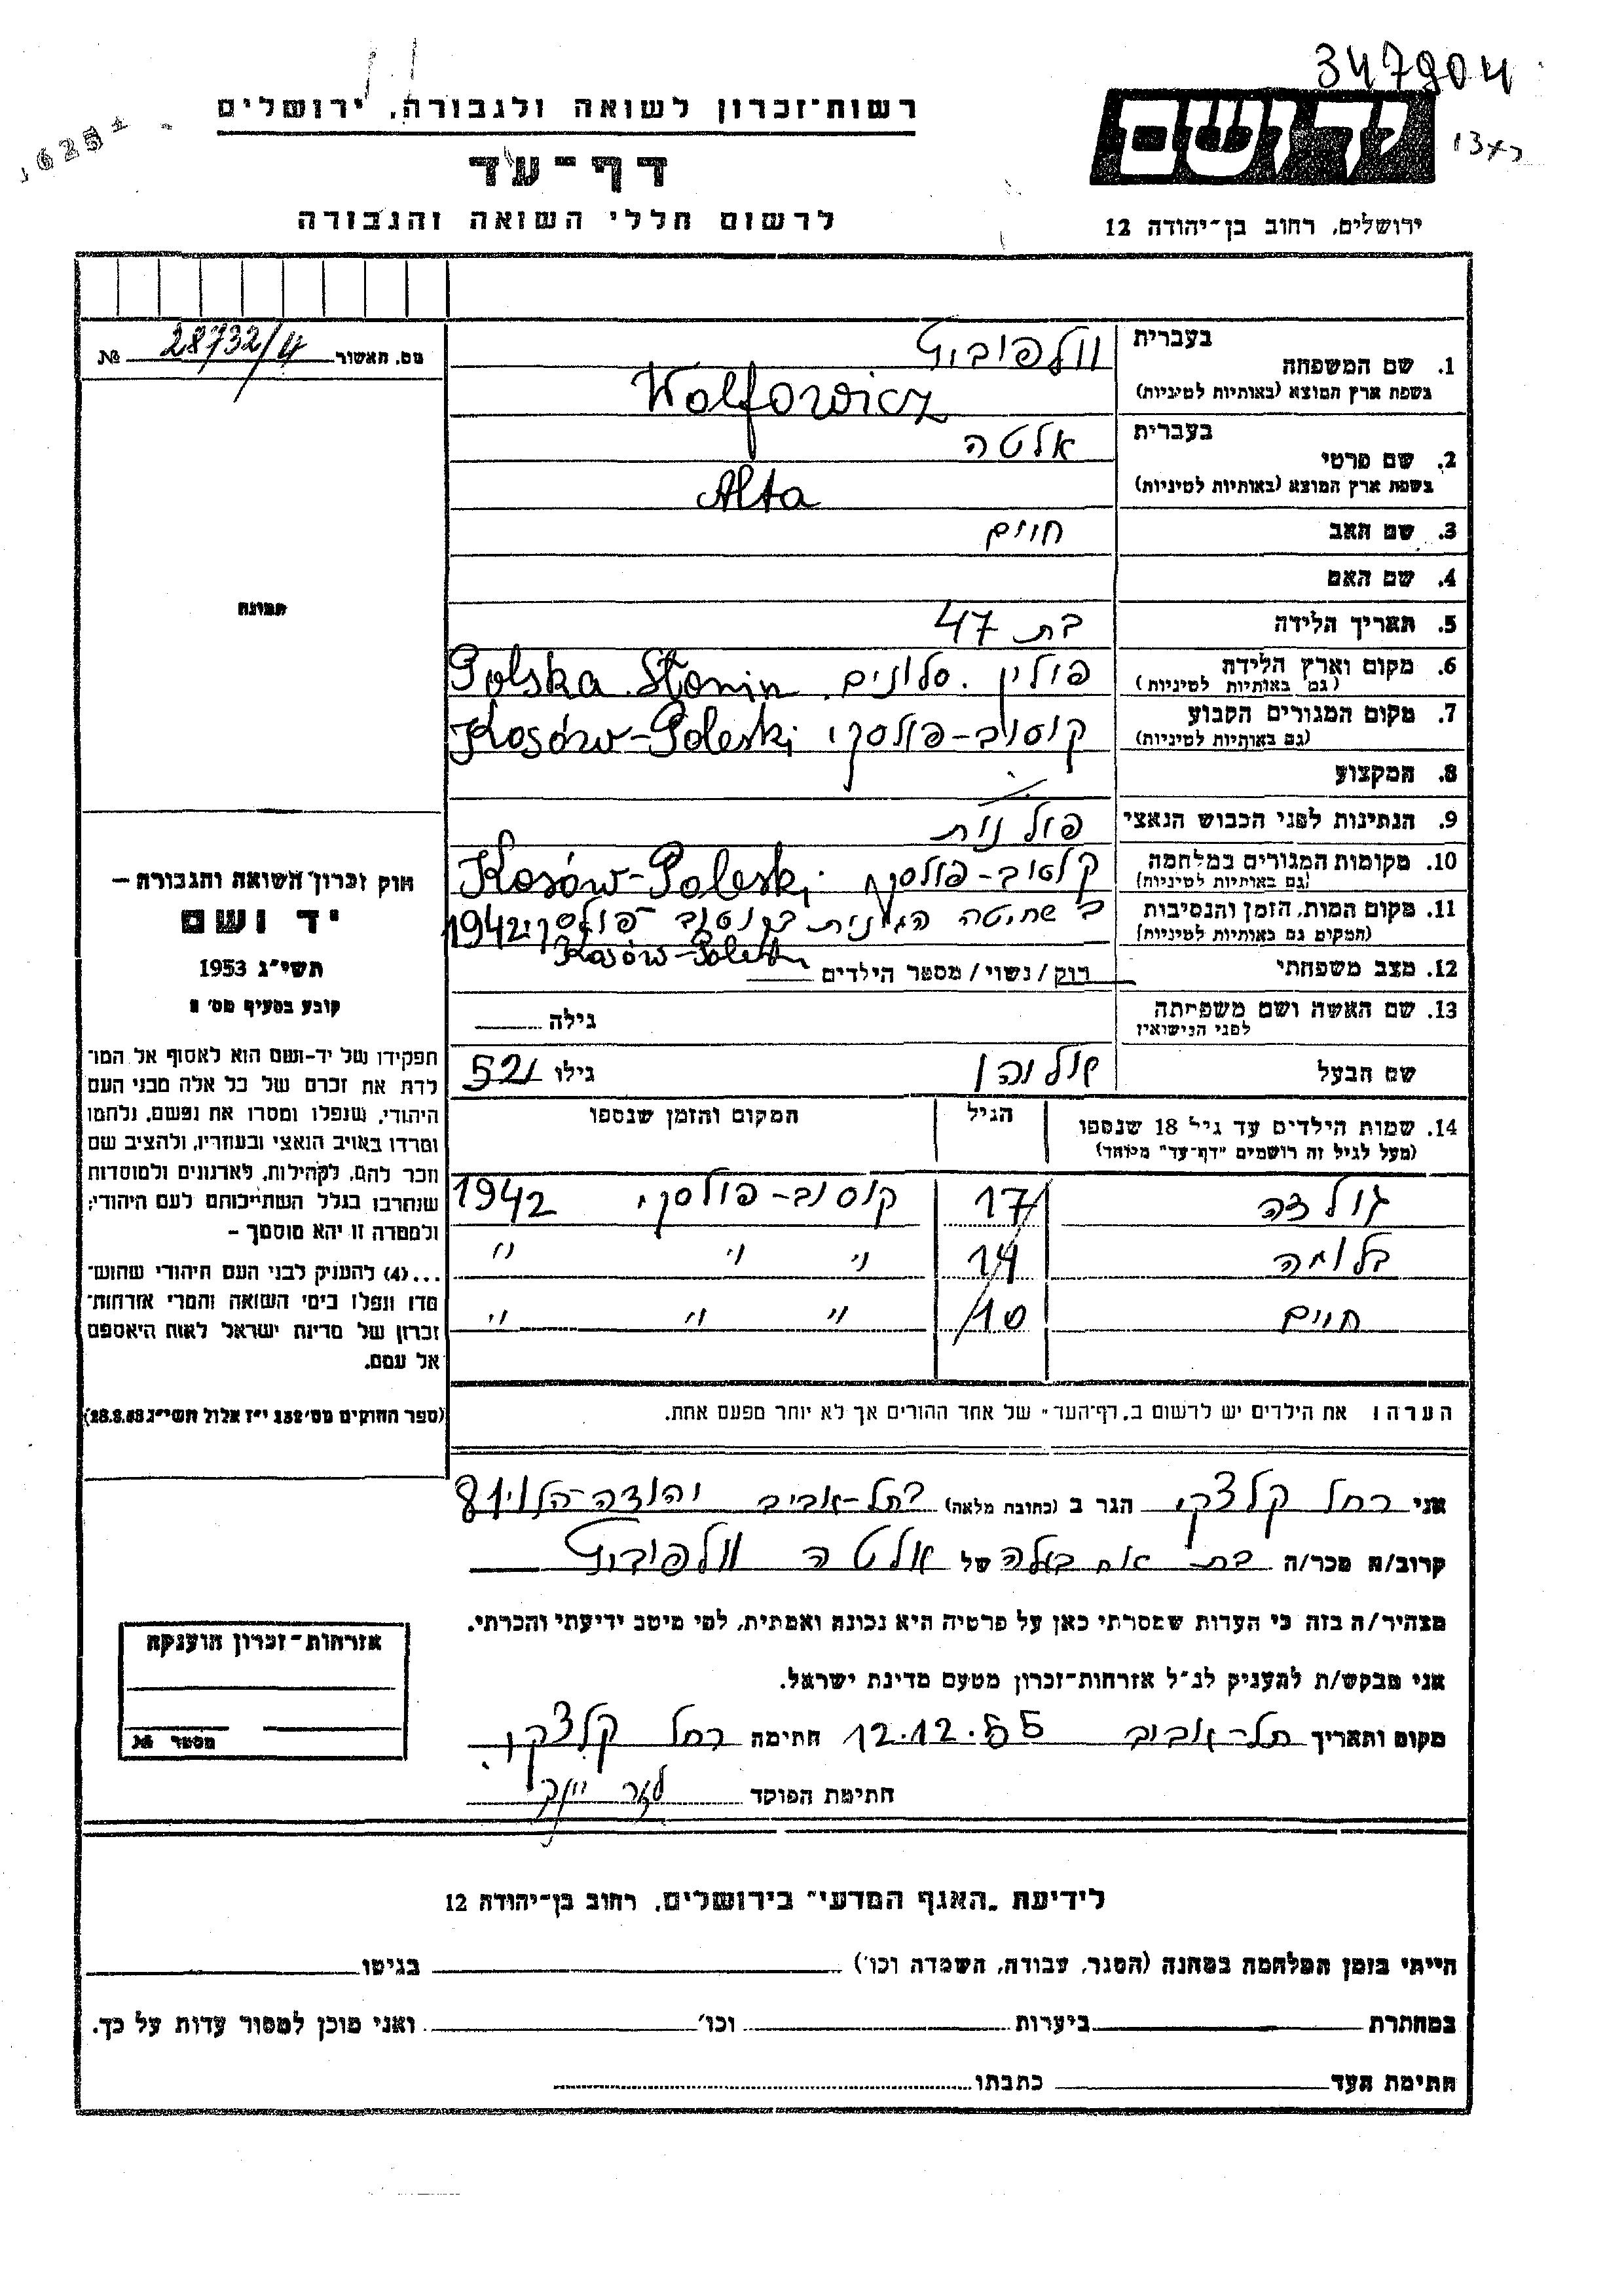 347904
רשות־זכרון לשואה ולגבורה, ירושלים
דף־עד
לרשום חללי השואה והגבורה
ידושם
ירושלים, רחוב בן־יהודה 12
מס. האשור 28732/4 №
1. שם המשפחה
בעברית וולפוביץ
בשפת ארץ המוצא (באותיות לטיניות) Wolfowicz
2. שם פרטי
בעברית אלטה
בשפת ארץ המוצא (באותיות לטיניות) Alta
3. שם האב חיים
4. שם האם
תמונה
5. תאריך הלידה בת 47
6. מקום וארץ הלידה (גם באותיות לטיניות) פולין. סלונים. Polska Słonin
7. מקום המגורים הקבוע (גם באותיות לטיניות) קוסוב-פולסקי Kosów-Poleski
8. המקצוע
9. הנתינות לפני הכבוש הנאצי פולנית
10. מקומות המגורים במלחמה (גם באותיות לטיניות) קוסוב-פולסקי Kosów-Poleski
11. מקום המות, הזמן והנסיבות (המקום גם באותיות לטיניות) בשחיטה בקוסוב-פולסקי 1942
Kosów-Poleski
12. מצב משפחתי רוק/נשוי/מספר הילדים
13. שם האשה ושם משפחתה לפני הנישואין גילה
שם הבעל גילו 52
14. שמות הילדים עד גיל 18 שנספו (מעל לגיל זה רושמים "דף-עד" מיוחד) הגיל המקום והזמן שנספו
גולדה 17 קוסוב-פולסקי 1942
בלומה 14 " " "
חיים 10 " " "
הערה: את הילדים יש לרשום ב„דף־העד" של אחד ההורים אך לא יותר מפעם אחת.
חוק זכרון השואה והגבורה —
יד ושם
תשי"ג 1953
קובע בסעיף מס'
תפקידו של יד-ושם הוא לאסוף אל המו־
לדת את זכרם של כל אלה מבני העם
היהודי, שנפלו ומסרו את נפשם, נלחמו
ומרדו באויב הנאצי ובעוזריו, ולהציב שם
וזכר להם, לקהילות, לארגונים ולמוסדות
שנחרבו בגלל השתייכותם לעם היהודי;
ולמטרה זו יהא מוסמך —
...(4) להעניק לבני העם היהודי שהוש־
מדו ונפלו בימי השואה והמרי אזרחות־
זכרון של מדינת ישראל לאות היאספם
אל עמם.
(ספר החוקים מס' 132 י"ז אלול תשי"ג 28.8.53)
אני רחל קלצקי הגר ב (כתובת מלאה) בתל-אביב יהודה-הלוי
קרוב/ה מכר/ה בת של אלטה וולפוביץ
מצהיר/ה בזה כי העדות שמסרתי כאן על פרטיה היא נכונה ואמתית, לפי מיטב ידיעתי והכרתי.
אני מבקש/ת להעניק לנ"ל אזרחות-זכרון מטעם מדינת ישראל.
מקום ותאריך תל-אביב 12.12.55 חתימה רחל קלצקי
חתימת הפוקד
אזרחות-זכרון הוענקה
מספר №
לידיעת „האגף המדעי" בירושלים, רחוב בן-יהודה 12
הייתי בזמן המלחמה במחנה (הסגר, עבודה, השמדה וכו') בגיטו
במחתרת ביערות וכו' ואני מוכן למסור עדות על כך.
חתימת העד כתבתו